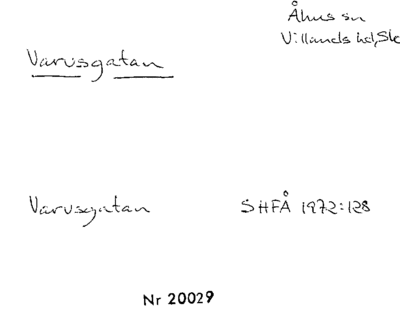 Åhus sn
Villands hd, Sk
Varusgatan
Varusgatan SHFÅ 1972:128
Nr 20029